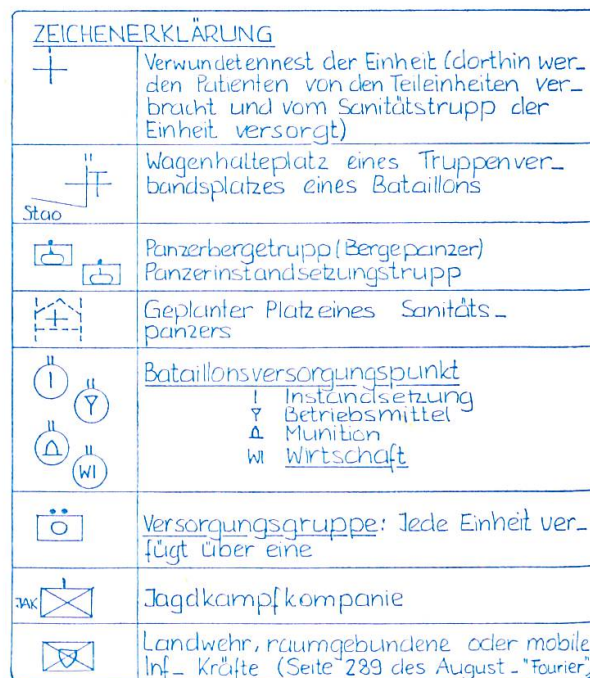 ZEICHENERKLÄRUNG
Verwundetennest der Einheit (dorthin wer_
den Patienten von den Teileinheiten ver_
bracht und vom Sanitätstrupp der
Einheit versorgt)
Wagenhalteplatz eines Truppenver_
bandsplatzes eines Bataillons
Stao
Panzerbergetrupp (Bergepanzer)
Panzerinstandsetzungstrupp
Geplanter Platz eines Sanitäts_
panzers
Bataillonsversorgungspunkt
I Instandsetzung
Y Betriebsmittel
Munition
WI Wirtschaft
I
Y
WI
Versorgungsgruppe: Jede Einheit ver_
fügt über eine
JAK
Jagdkampfkompanie
Landwehr, raumgebundene oder mobile
Inf_ Kräfte (Seite 289 des August_"Fourier")